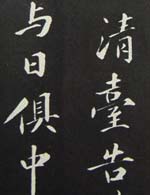 清臺告
与日俱中